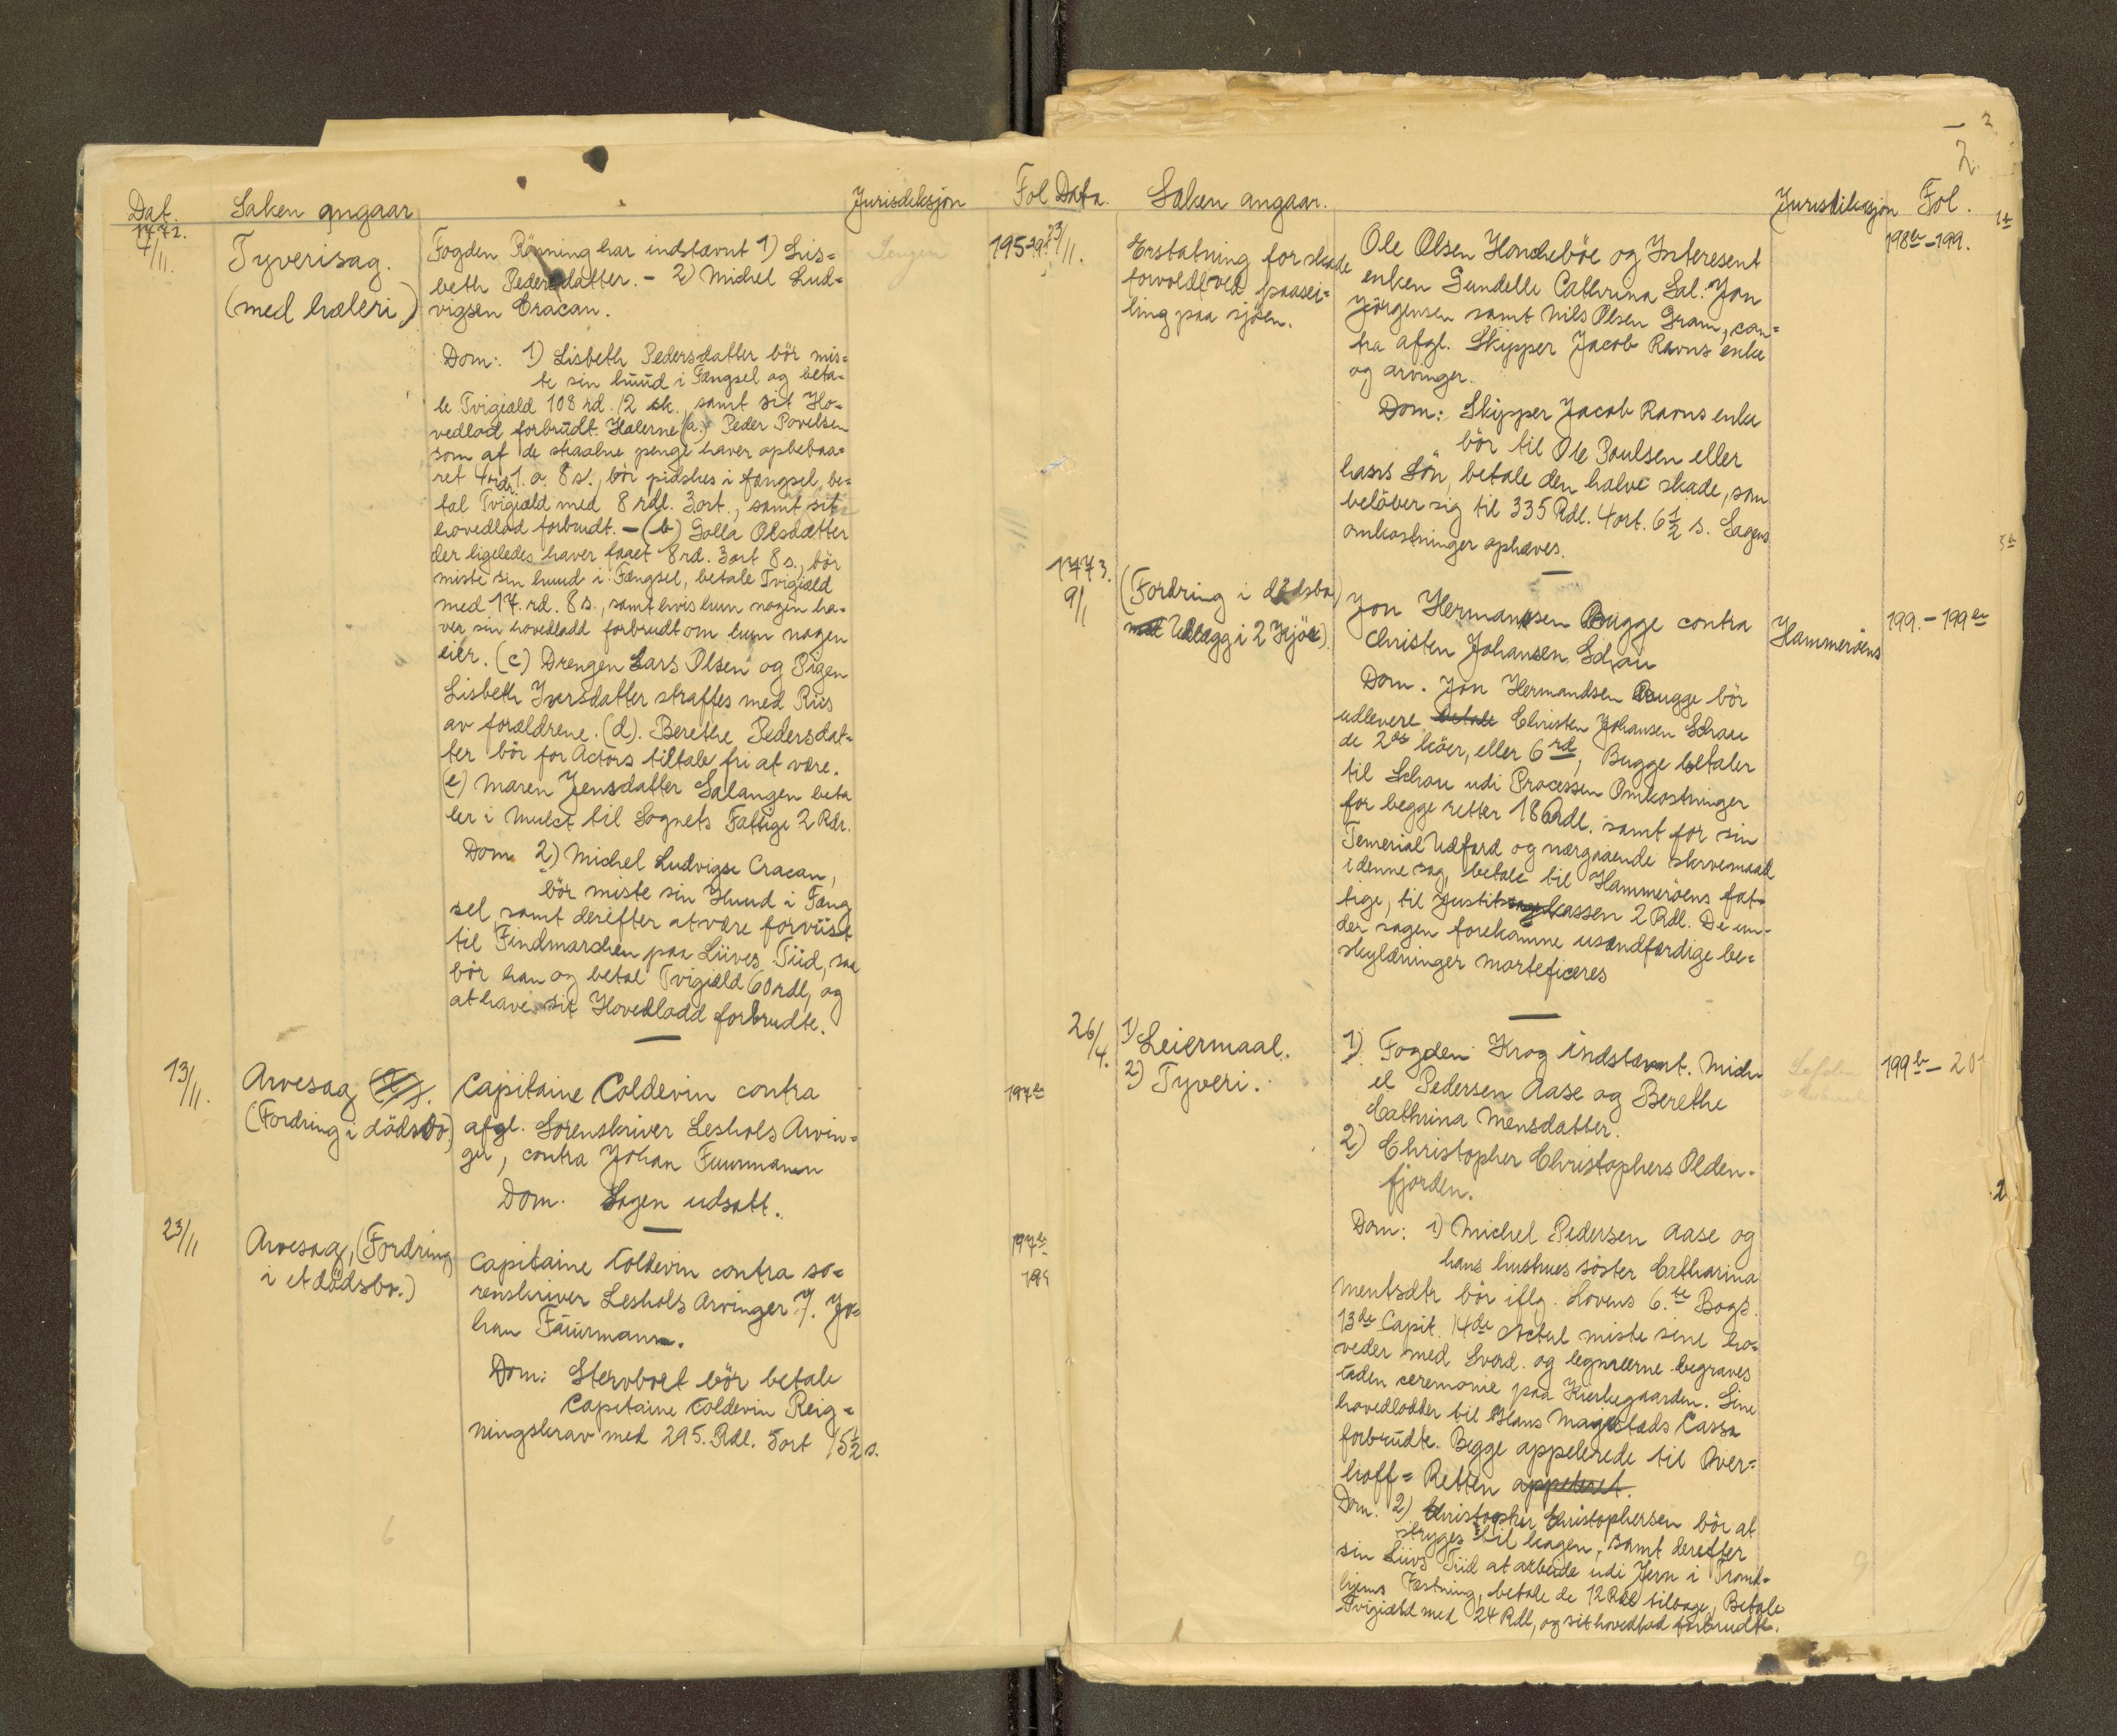 Dat. Saken angaar Jurisdiksjon Fol
1772.
4/11. Tyverisag.
(med hæleri)
Fogden Rönning har indstævnt 1) Lis=
beth Pedersdatter. - 2) Michel Lud=
vigsen Cracan.
Dom: 1) Lisbeth Pedersdatter bör mis=
te sin huud i Fængsel og beta=
le Tvigiæld 108 rd. 12 sk. samt sit Ho=
vedlod forbrudt. Hælerne (a.) Peder Povelsen
som af de staalne penge haver opbebaa=
ret 4 rdr. 1. o. 8 s., bör pidskes i fængsel, be=
tal Tvigiæld med 8 rdl. 3 ort., samt sit
hovedlod forbrudt. - (b) Golla Olsdatter
der ligeledes haver faaet 8 rd. 3 ort 8 s., bör
miste sin huud i Fængsel, betale Tvigiæld
med 17. rd. 8 s., samt hvis hun nogen ha-
ver sin hovedladd forbrudt om hun nogen
eier. (c) Drengen Lars Olsen og Pigen
Lisbeth Iversdatter straffes med Riis
av forældrene. (d). Berethe Pedersdat=
ter bör for Actors tiltale fri at være.
(e) Maren Jensdatter Salangen beta
ler i Mulct til Sognets Fattige 2 Rdr.
Dom 2) Michel Ludvigse Cracan,
bör miste sin Huud i Fæng
sel, samt derefter at være forviist
til Findmarchen paa Liives Tiid, saa
bör han og betal Tvigiæld 60 rdl, og
at have sit Hovedladd forbrudte.
Sengen
13/11. Arvesag
(Fordring i dödsbo.)
Capitaine Coldevin contra
afgl. Sorenskriver Leshols Arvin=
ger, contra Johan Fuurmann
Dom. Sagen udsatt.
197b
23/11 Arvesag, (Fordring
i et dödsbo.)
Capitaine Coldevin contra so=
renskriver Leshols Arvinger 7. Jo=
han Fuurmann.
Dom: Stervboet bör betale
Capitaine Coldevin Reig=
ningskrav med 295. Rdl. 5 ort 15 1/2 s.
197b
198
6
2
Data. Saken angaar. Jurisdiksjon Fol.
23/11. Erstatning for skade
forvoldt ved paasei=
ling paa sjöen.
Ole Olsen Hondeböe og Interesent
enken Gundelle Cathrina Sal. Jon
Jörgensen samt Nils Olsen Gram, con=
tra afgl. Skipper Jacob Ravns enke
og arvinger.
Dom: Skipper Jacob Ravns enke
bör til Ole Paulsen eller
hans Sön, betale den halve skade, som
belöber sig til 335 Rdl. 4 ort. 6 1/2 s. Sagens
omkostninger ophæves.
198b - 199.
1773.
9/1 (Fordring i dödsbo)
med Udlægg i 2 Kjöer).
Jon Hermansen Bugge contra
Christen Johansen Schau
Dom. Jon Hermandsen Bugge bör
udlevere betale Christen Johansen Schau
de 2de kiöer, eller 6 rd, Bugge betaler
til Schau udi Processen Omkostninger
for begge retter 18 Rdl. samt for sin
Temerial Udfærd og nærgaaende skrivemaad
i denne sag, betale til Hammeröens fat=
tige, til Justitskassen 2 Rdl. De un-
der sagen forekomne usandfærdige be=
skyldninger morteficeres
Hammeröens
199. - 199b
26/4. 1) Leiermaal.
2) Tyveri.
1) Fogden Krog indstævnt. Mich-
el Pedersen Aase og Berethe
Cathrina Mensdatter.
2) Christopher Christophers Olden-
fjorden.
Dom: 1) Michel Pedersen Aase og
hans hustrues söster Catharina
Mentsdtr bör iflg. Lovens 6.te Bogs
13de Capit. 14de Actul miste sine ho=
veder med Sverd. og legmeerne begraves
uden ceremonie paa Kierkegaarden. Sine
hovedlodder til Hans Magistæds Cassa
forbrudte. Begge appelerede til Over=
hoff = Retten appeleret.
Dom. 2) Christopher Christophersen bör at
stryges til kagen, samt derefter
sin Liivs Tiid at arbeide udi Jern i Trond-
hjems Fæstning, betale de 12 Rdl tilbage, Betale
Tvigiæld med 24 Rdl, og sit hovedlod forbrudt.
199b - 20
9